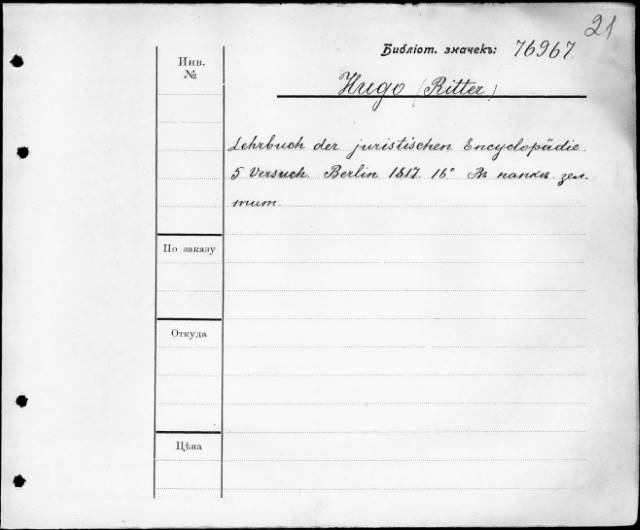 21
Библіот. значекъ: 76967.
Инв.
№
Hugo (Ritter)
Lehrbuch der juristischen Encyclopädie.
5 Versuch. Berlin 1817. 16° Въ папкѣ. зел.
тит.
По заказу
Откуда
Цѣна